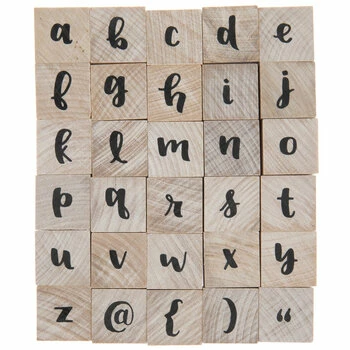 a b c d e
f g h i j
k l m n o
p q r s t
u v w x y
z @ { } “